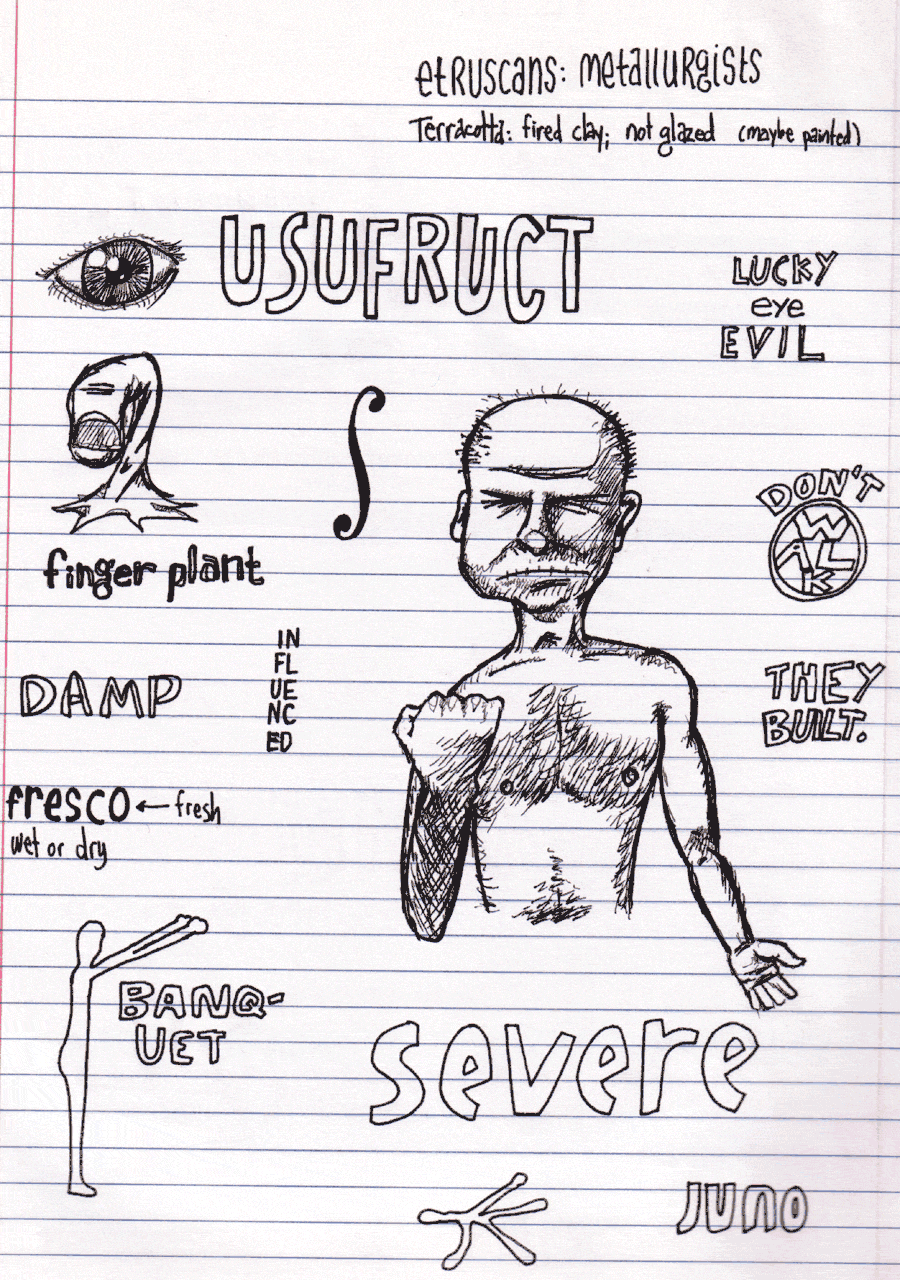 etruscans: metallurgists
Terracotta: fired clay; not glazed (maybe painted)
USUFRUCT
LUCKY
eye
EVIL
finger plant
DON'T
WALK
IN
FL
UE
NC
ED
DAMP
THEY
BUILT.
fresco ← fresh
wet or dry
BANQ-
UET
severe
JUNO